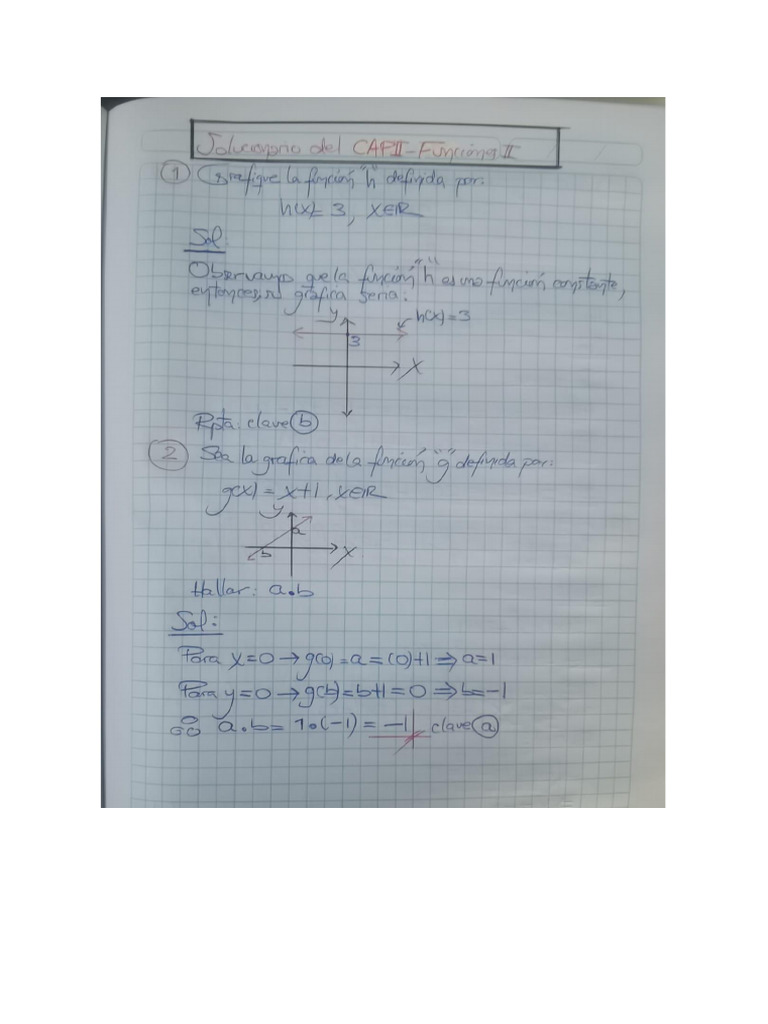 Solucionario del CAPII-Funciones II
① Grafique la función "h" definida por:
h(x)= 3, x∈R
Sol
Observamos que la función "h" es una función constante,
entonces, su gráfica seria:
y
h(x)=3
3
X
Rpta: clave ⓑ
② Sea la grafica de la función "g" definida por:
g(x) = x+1, x∈R
y
a
b
X
Hallar: a.b
Sol:
Para x=0 → g(0)=a=(0)+1 ⇒ a=1
Para y=0 → g(b)=b+1=0 ⇒ b=-1
∴ a.b= 1.(-1) = -1 clave ⓐ